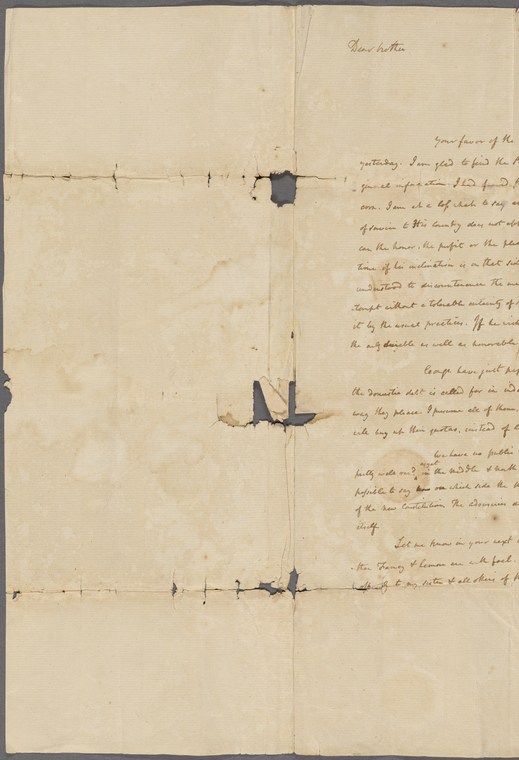 Dear brother
Your favor of the
yesterday. I am glad to find the
general information. I had found
corn. I am at a loss what to say as
of services to this Country does not
can the honor, the profit or the
tions of his inclination is on that
understood to discountenance the
-tempt without a tolerable certainty of
it by the usual practices. If he
the only desirable as well as honorable
have just
the domestic debt is called for in
way they please. I presume all of them
will buy up their quotas, instead of
We have no public
pretty wide and, except in the middle &
possible to say on which side the
of the new Constitution. The Advocates
itself
Let me know in your next
-ther Francy & are with
-ately to my sister & all others of